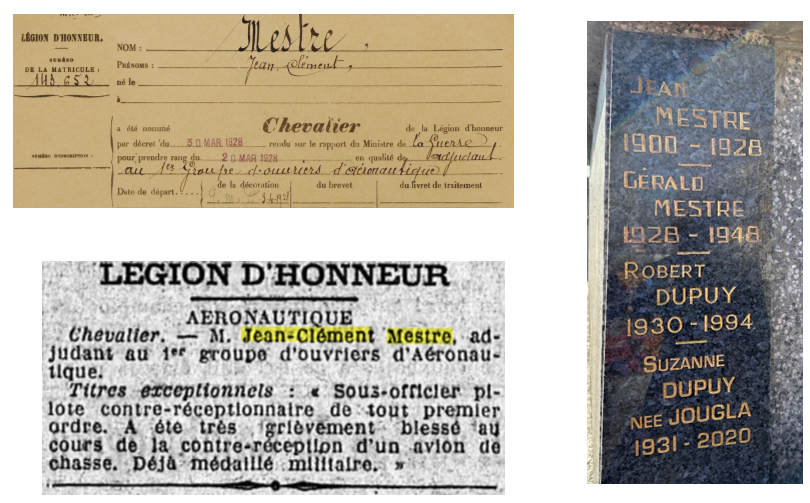 LÉGION D'HONNEUR.
NUMÉRO
DE LA MATRICULE :
143.652
NUMÉRO D'INSCRIPTION :
NOM : Mestre,
Prénoms : Jean Clément,
né le
à
a été nommé Chevalier de la Légion d'honneur
par décret du 30 MAR 1928 rendu sur le rapport du Ministre de la Guerre
pour prendre rang du 20 MAR 1928 en qualité de adjudant
au 1er Groupe d'ouvriers d'Aéronautique
Date de départ..... de la décoration du brevet du livret de traitement
LEGION D'HONNEUR
AERONAUTIQUE
Chevalier. — M. Jean-Clément Mestre, ad-
judant au 1er groupe d'ouvriers d'Aéronau-
tique.
Titres exceptionnels : « Sous-officier pi-
lote contre-réceptionnaire de tout premier
ordre. A été très grièvement blessé au
cours de la contre-réception d'un avion de
chasse. Déjà médaillé militaire. »
JEAN
MESTRE
1900 - 1928
GÉRALD
MESTRE
1928 - 1948
ROBERT
DUPUY
1930 - 1994
SUZANNE
DUPUY
NEE JOUGLA
1931 - 2020